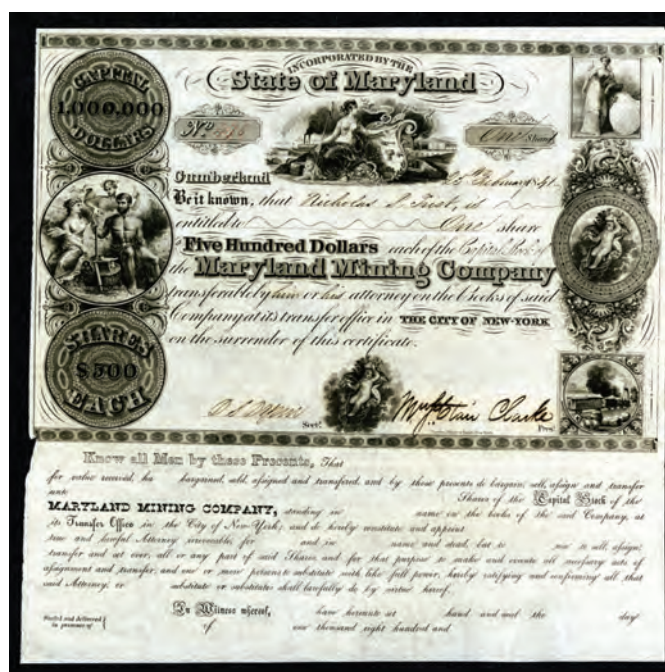 CAPITAL
1,000,000
DOLLARS
INCORPORATED BY THE
State of Maryland
No
One Share
Cumberland 25th February 1841
Be it known, that Nicholas P. Trist, is
entitled to One share
Five Hundred Dollars each of the Capital Stock of
the Maryland Mining Company
transferable by him or his attorney on the books of said
Company at its transfer office in THE CITY OF NEW-YORK
on the surrender of this certificate.
SHARES
$500
EACH
Secy.
Clarke
Prest.
Know all Men by these Presents, That
for value received, ha bargained, sold, assigned and transfered, and by these presents do bargain, sell, assign and transfer
unto Shares of the Capital Stock of the
MARYLAND MINING COMPANY, standing in name on the books of the said Company, at
its Transfer Office in the City of New-York; and do hereby constitute and appoint
true and lawful Attorney irrevocable, for and in name and stead, but to use to sell, assign,
transfer and set over, all or any part of said Shares and for that purpose to make and execute all necessary acts of
assignment and transfer, and one or more persons to substitute with like full power, hereby ratifying and confirming all that
said Attorney, or substitute or substitutes shall lawfully do by virtue hereof.
In Witness whereof, have hereunto set hand and seal the day
of one thousand eight hundred and
Sealed and delivered
in presence of